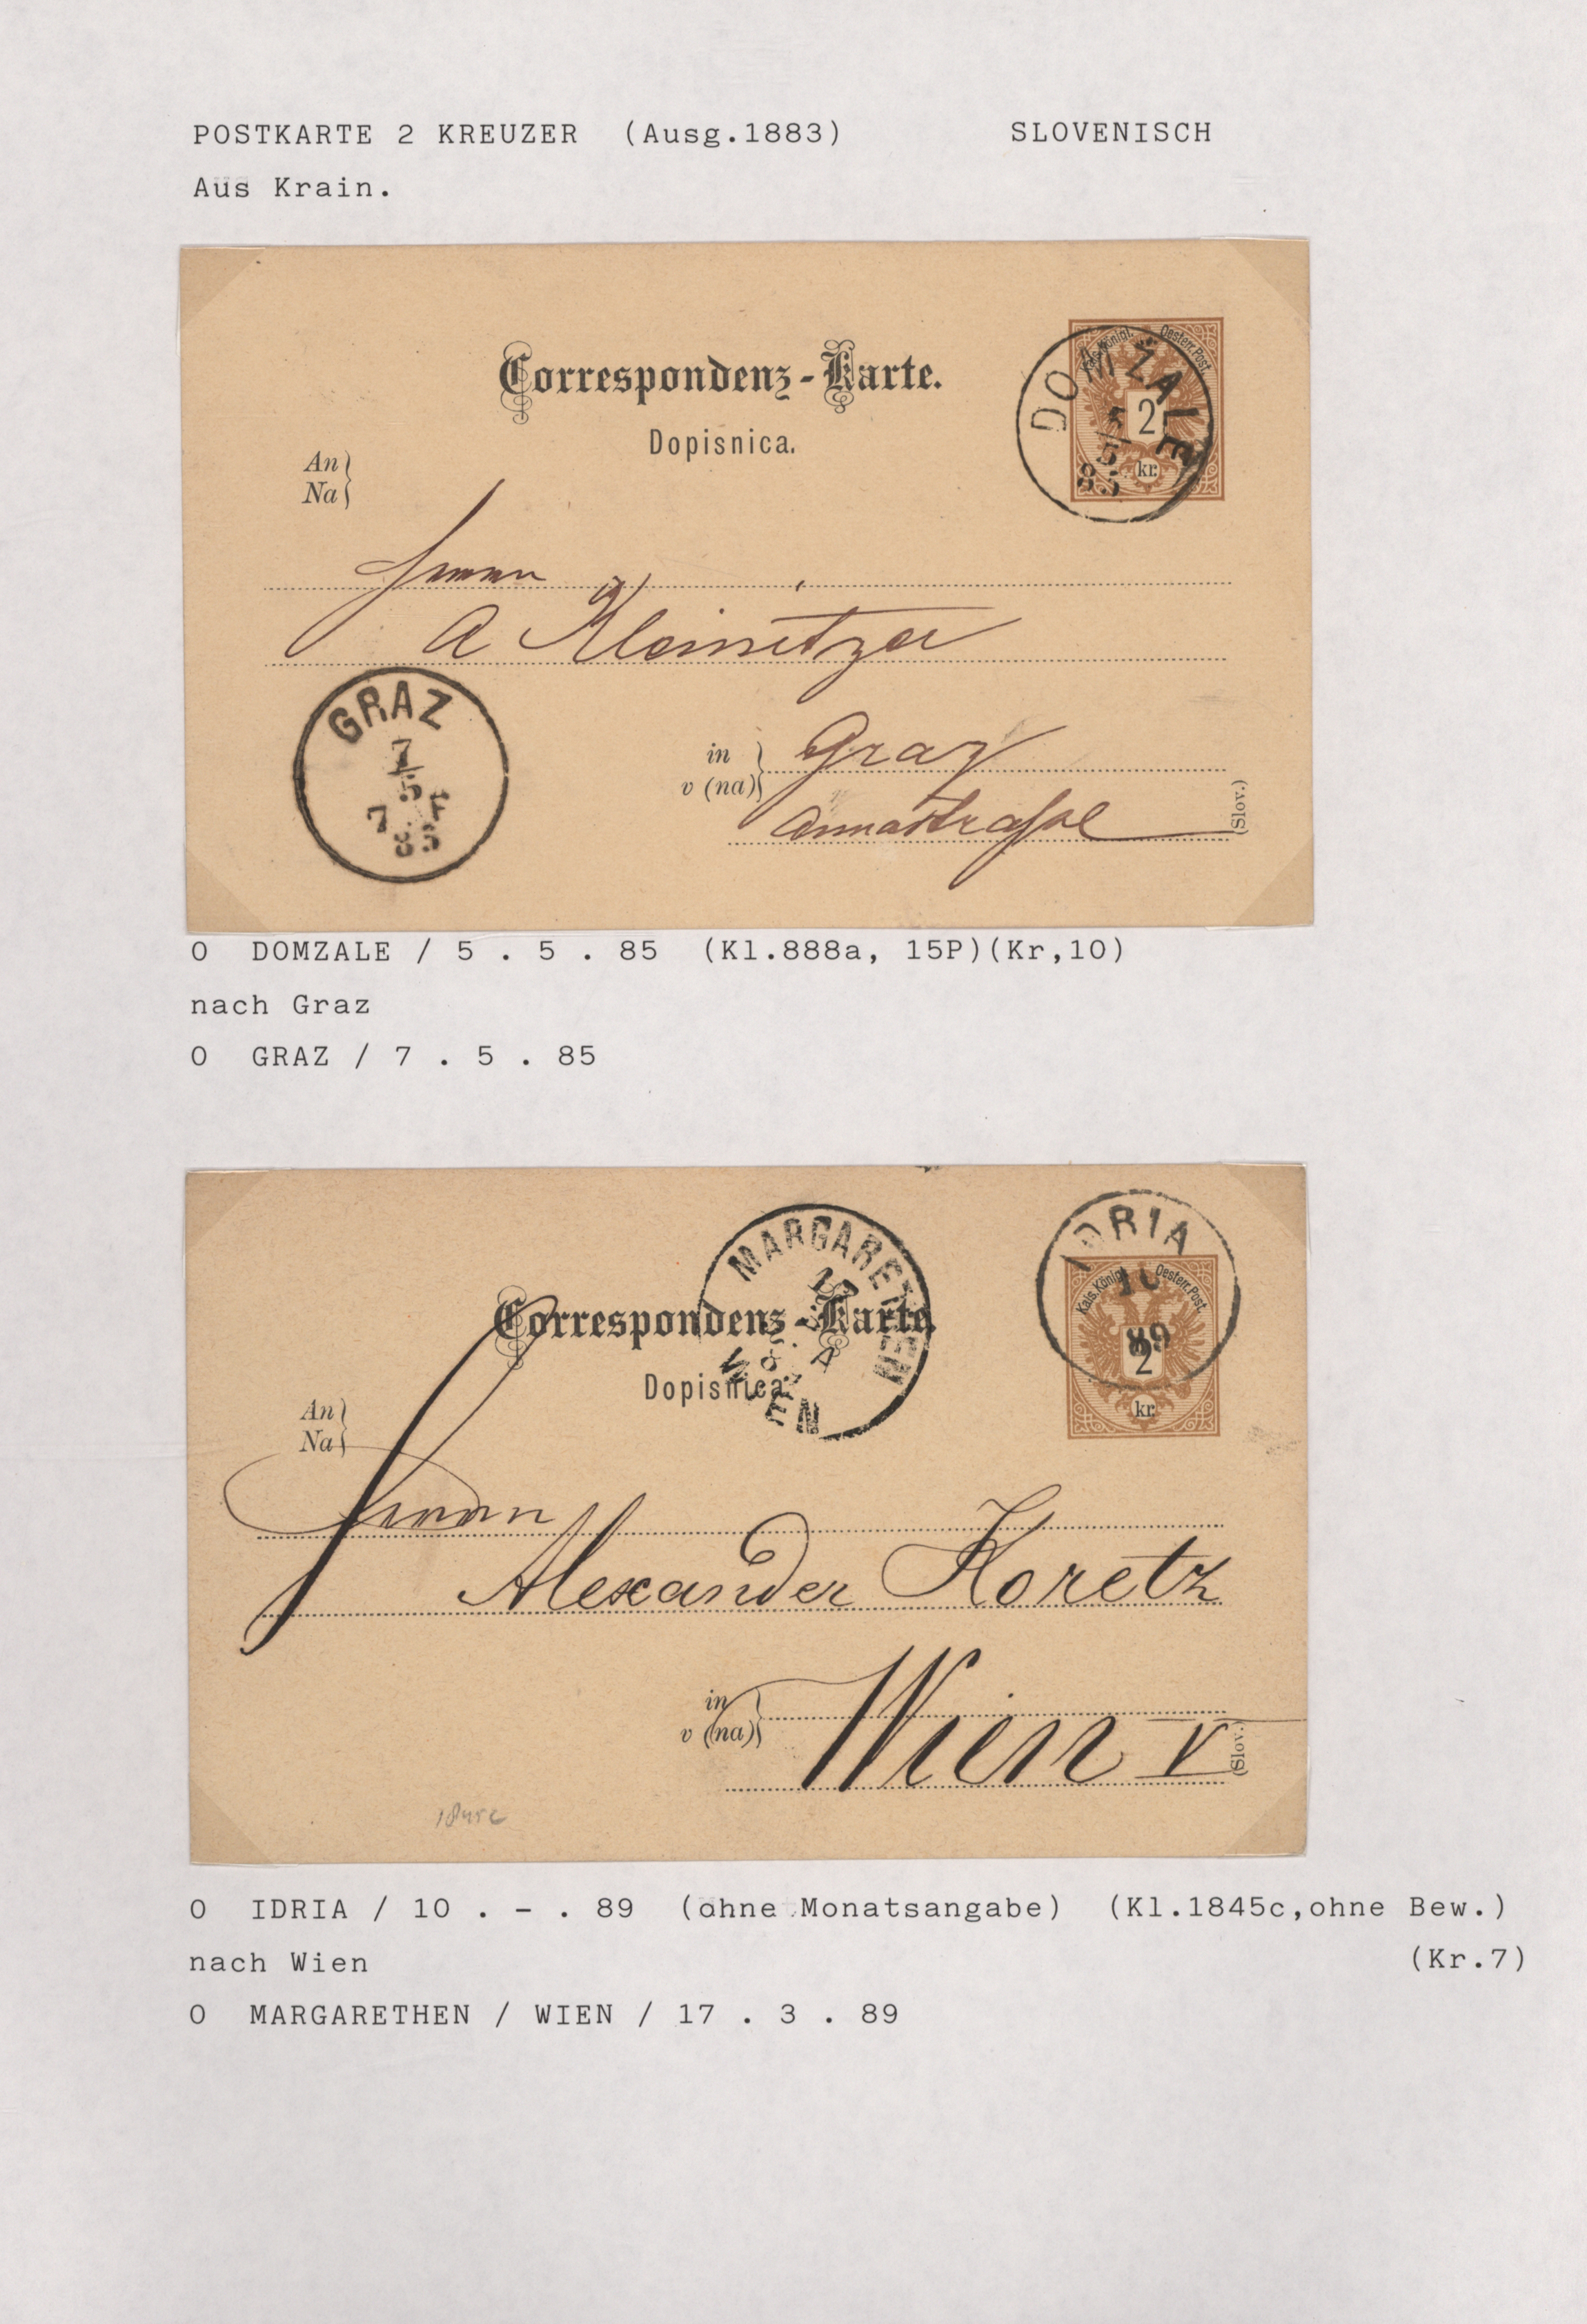 POSTKARTE 2 KREUZER (Ausg.1883) SLOVENISCH
Aus Krain.
Correspondenz-Karte.
Dopisnica.
Kais. Königl. Oesterr. Post
2
kr.
DOMŽALE
5/5
85
An
Na
Herrn
A Kleinitzer
GRAZ
7/5
7 F
85
in
v (na)
Graz
Annastraße
(Slov.)
O DOMZALE / 5 . 5 . 85 (Kl.888a, 15P)(Kr,10)
nach Graz
O GRAZ / 7 . 5 . 85
MARGARETHEN
17
WIEN
IDRIA
10
89
Correspondenz-Karte.
Dopisnica.
Kais. Königl. Oesterr. Post.
2
kr.
An
Na
Herrn
Alexander Koretz
in
v (na)
Wien V
(Slov.)
1845c
O IDRIA / 10 . - . 89 (ohne Monatsangabe) (Kl.1845c,ohne Bew.)
nach Wien (Kr.7)
O MARGARETHEN / WIEN / 17 . 3 . 89